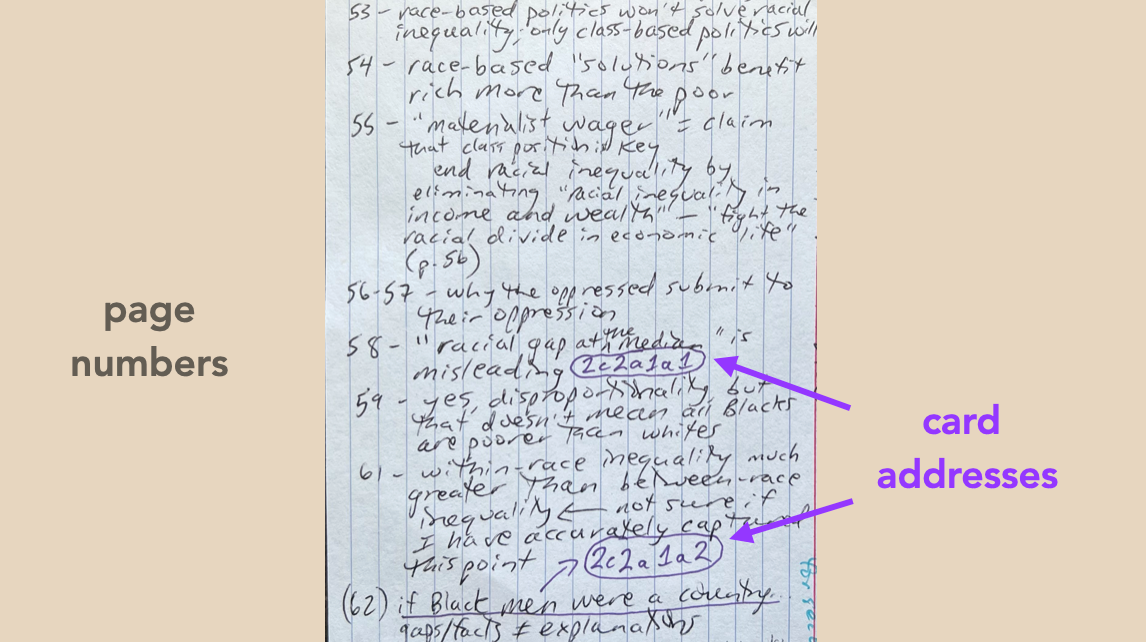 53 - race-based politics won't solve racial
inequality; only class-based politics will
54 - race-based "solutions" benefit
rich more than the poor
55 - "materialist wager" = claim
that class position is key
end racial inequality by
eliminating "racial inequality in
income and wealth" — "fight the
racial divide in economic life"
(p. 56)
56-57 - why the oppressed submit to
their oppression
page
numbers
58 - "racial gap at the median" is
misleading 2c2a1a1
59 - yes, disproportionality, but
that doesn't mean all Blacks
are poorer than whites
card
addresses
61 - within-race inequality much
greater than between-race
inequality ← not sure if
I have accurately captured
this point → 2c2a1a2
(62) if Black men were a country...
gaps/facts ≠ explanations